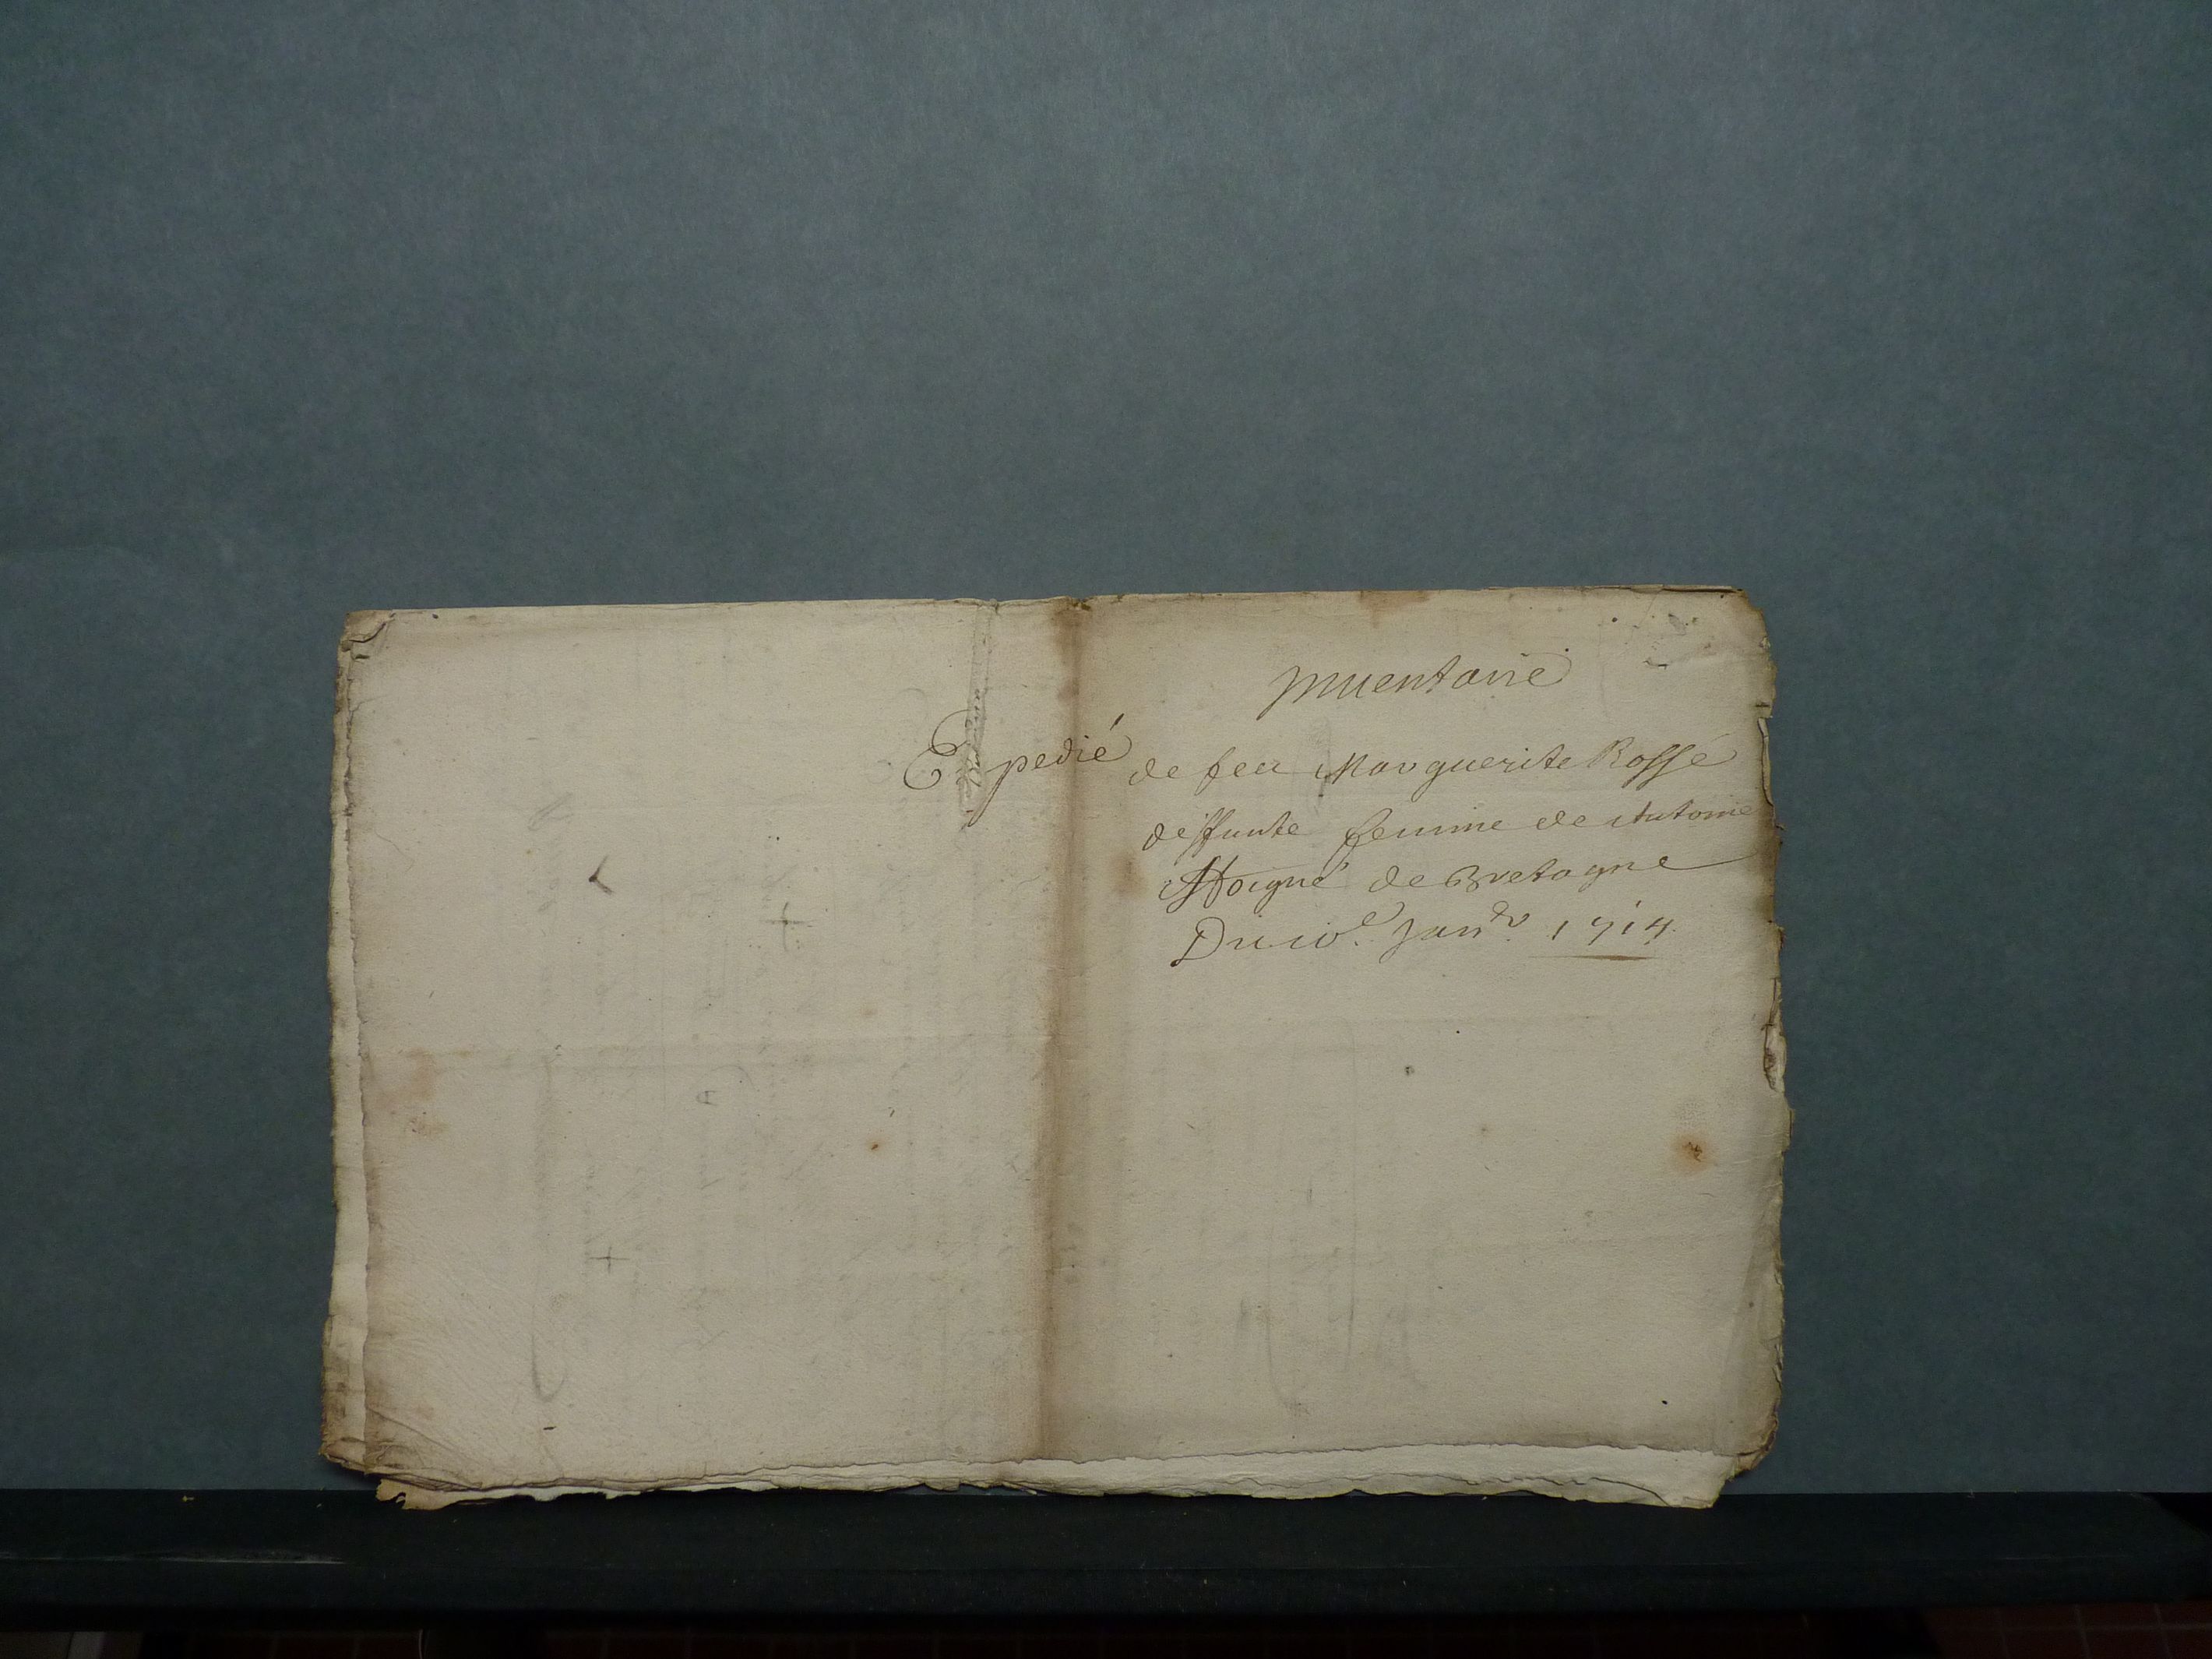 Inuentaire
Expedié
de feu Marguerite Rossé
deffunte femme de Antoine
Hoigné de Bretagne
Du 10e. Janr 1714